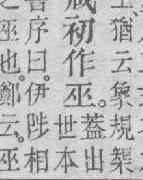 猶云象規榘
咸初作巫。蓋出
世本
序曰。伊陟相
巫也。鄭云。巫